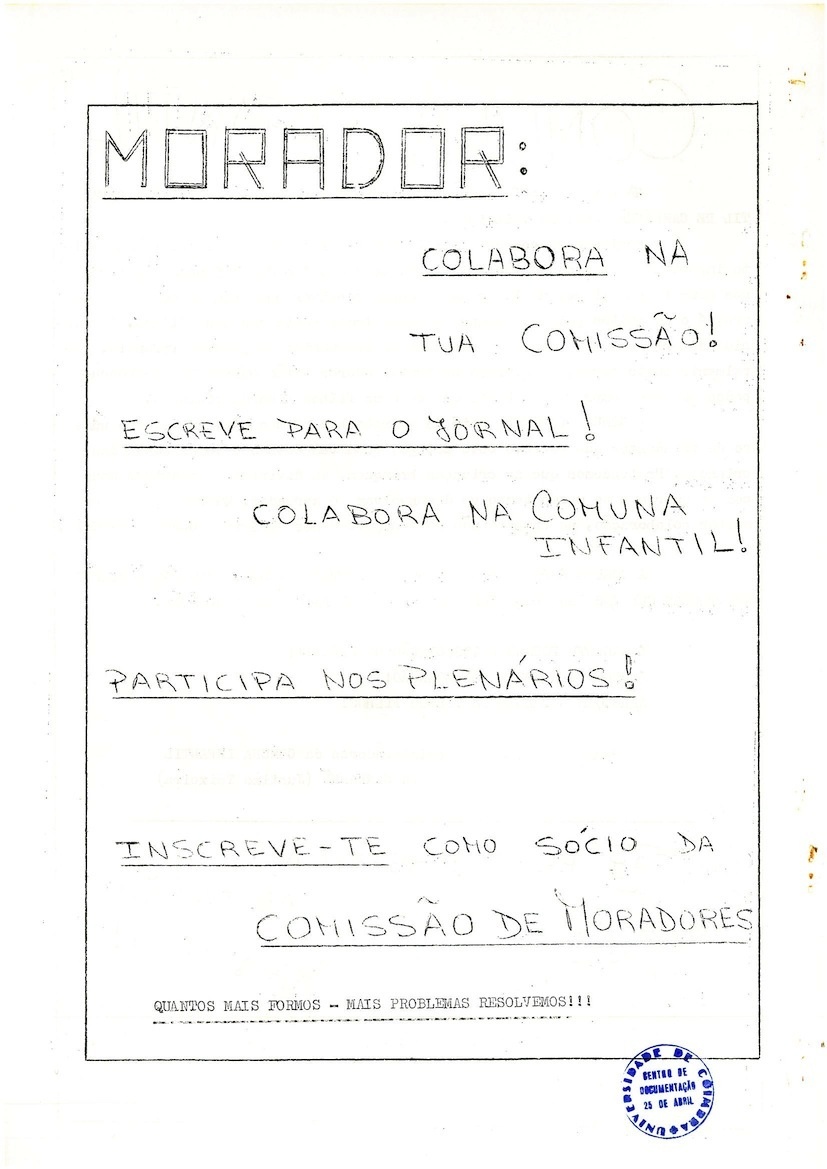 MORADOR:
COLABORA NA
TUA COMISSÃO!
ESCREVE PARA O JORNAL!
COLABORA NA COMUNA
INFANTIL!
PARTICIPA NOS PLENÁRIOS!
INSCREVE-TE COMO SÓCIO DA
COMISSÃO DE MORADORES
QUANTOS MAIS FORMOS - MAIS PROBLEMAS RESOLVEMOS!!!
UNIVERSIDADE DE COIMBRA
CENTRO DE
DOCUMENTAÇÃO
25 DE ABRIL